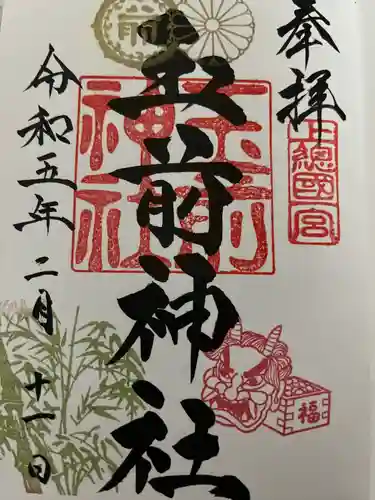 奉拝
上總國一宮
前
玉前神社
玉前神社
福
令和五年二月十一日